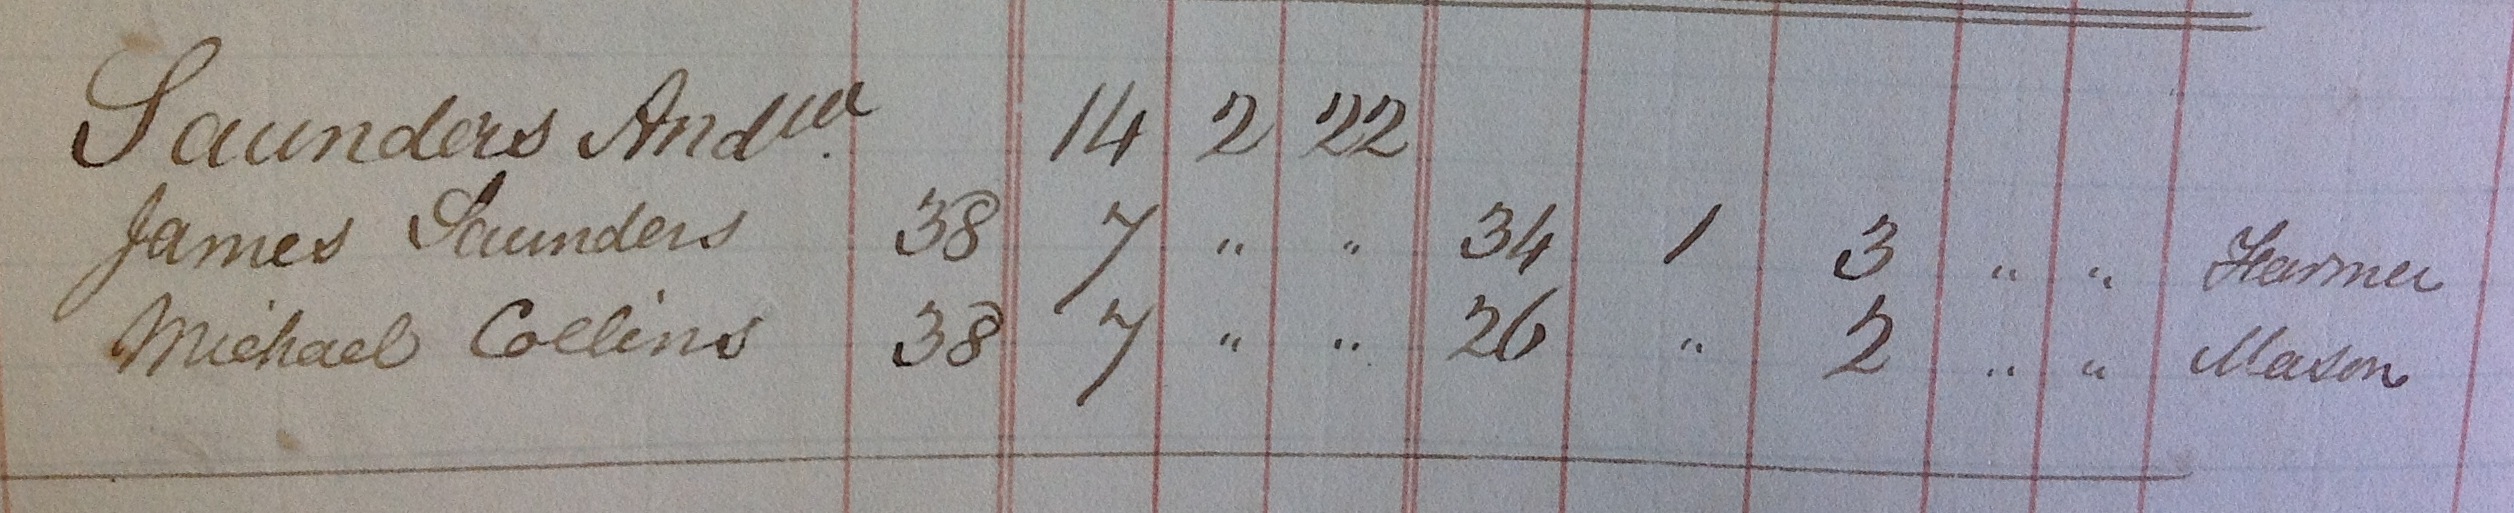 Saunders And.w 14 2 22
James Saunders 38 7 " " 34 1 3 " " Farmer
Michael Collins 38 7 " " 26 " 2 " " Mason